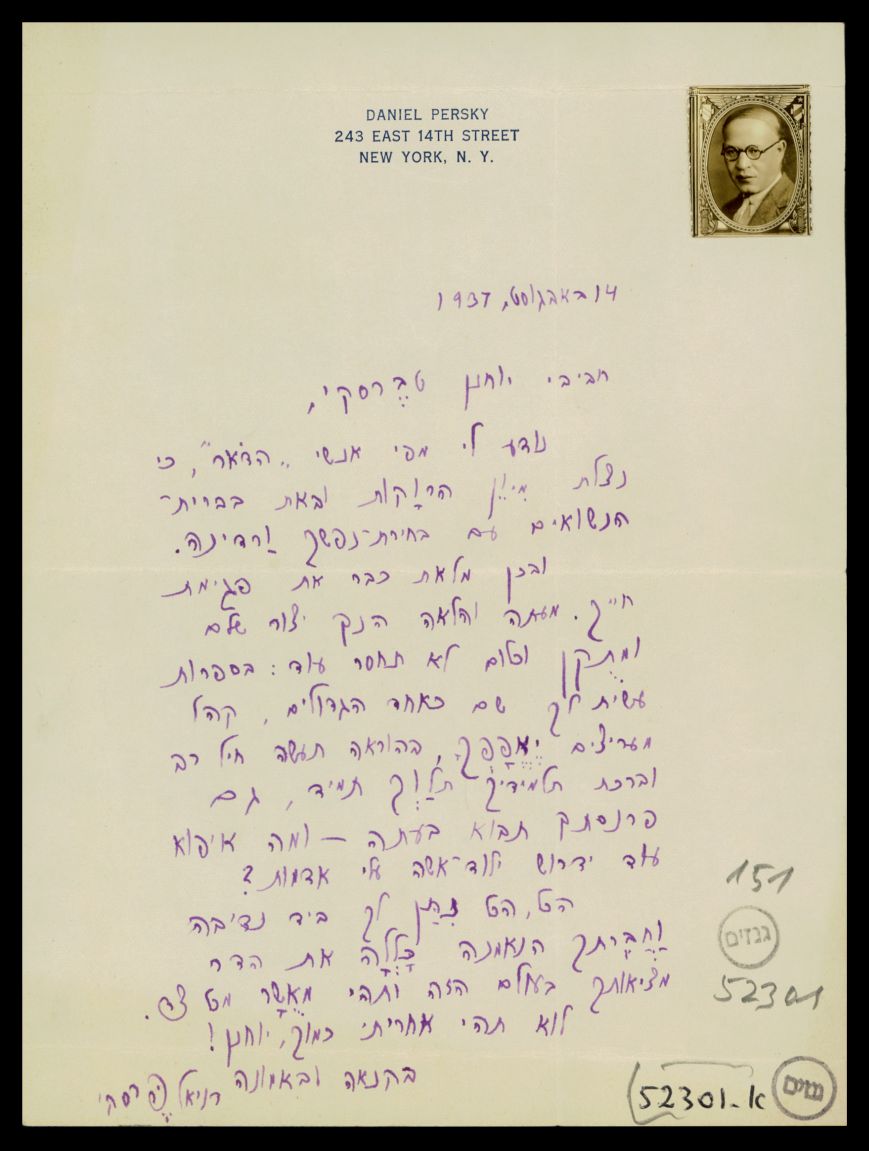 DANIEL PERSKY
243 EAST 14TH STREET
NEW YORK, N. Y.
14 באבגוסט, 1937
חביבי יוחנן טברסקי,
נודע לי מפי אנשי „הדאר", כי
נצלת מיון הרוקות ובאת בברית־
הנשואים עם בחירת־נפשך ורדינה.
ובכן מלאת כבר את פגימת
חייך. מעתה והלאה הנך יצור שלם
ומתקן וכלום לא תחסר עוד: בספרות
עשית לך שם כאחד הגדולים, קהל
מעריצים יאפפך, בהוראה תעשה חיל רב
וברכת תלמידיך תלוך תמיד, גם
פרנסתך תבוא בעתה – ומה איפוא
עוד ידרוש ילוד־אשה עלי אדמות?
הכל, הכל נתן לך ביד נדיבה
וחברתך הנאמנה כללה את הדר
מציאותך בעולם הזה ותהי מאשר מכל צד.
לוא תהי אחריתי כמוך, יוחנן!
בקנאה ובאמונה דניאל פרסקי
151
גנזים
52301
52301-א